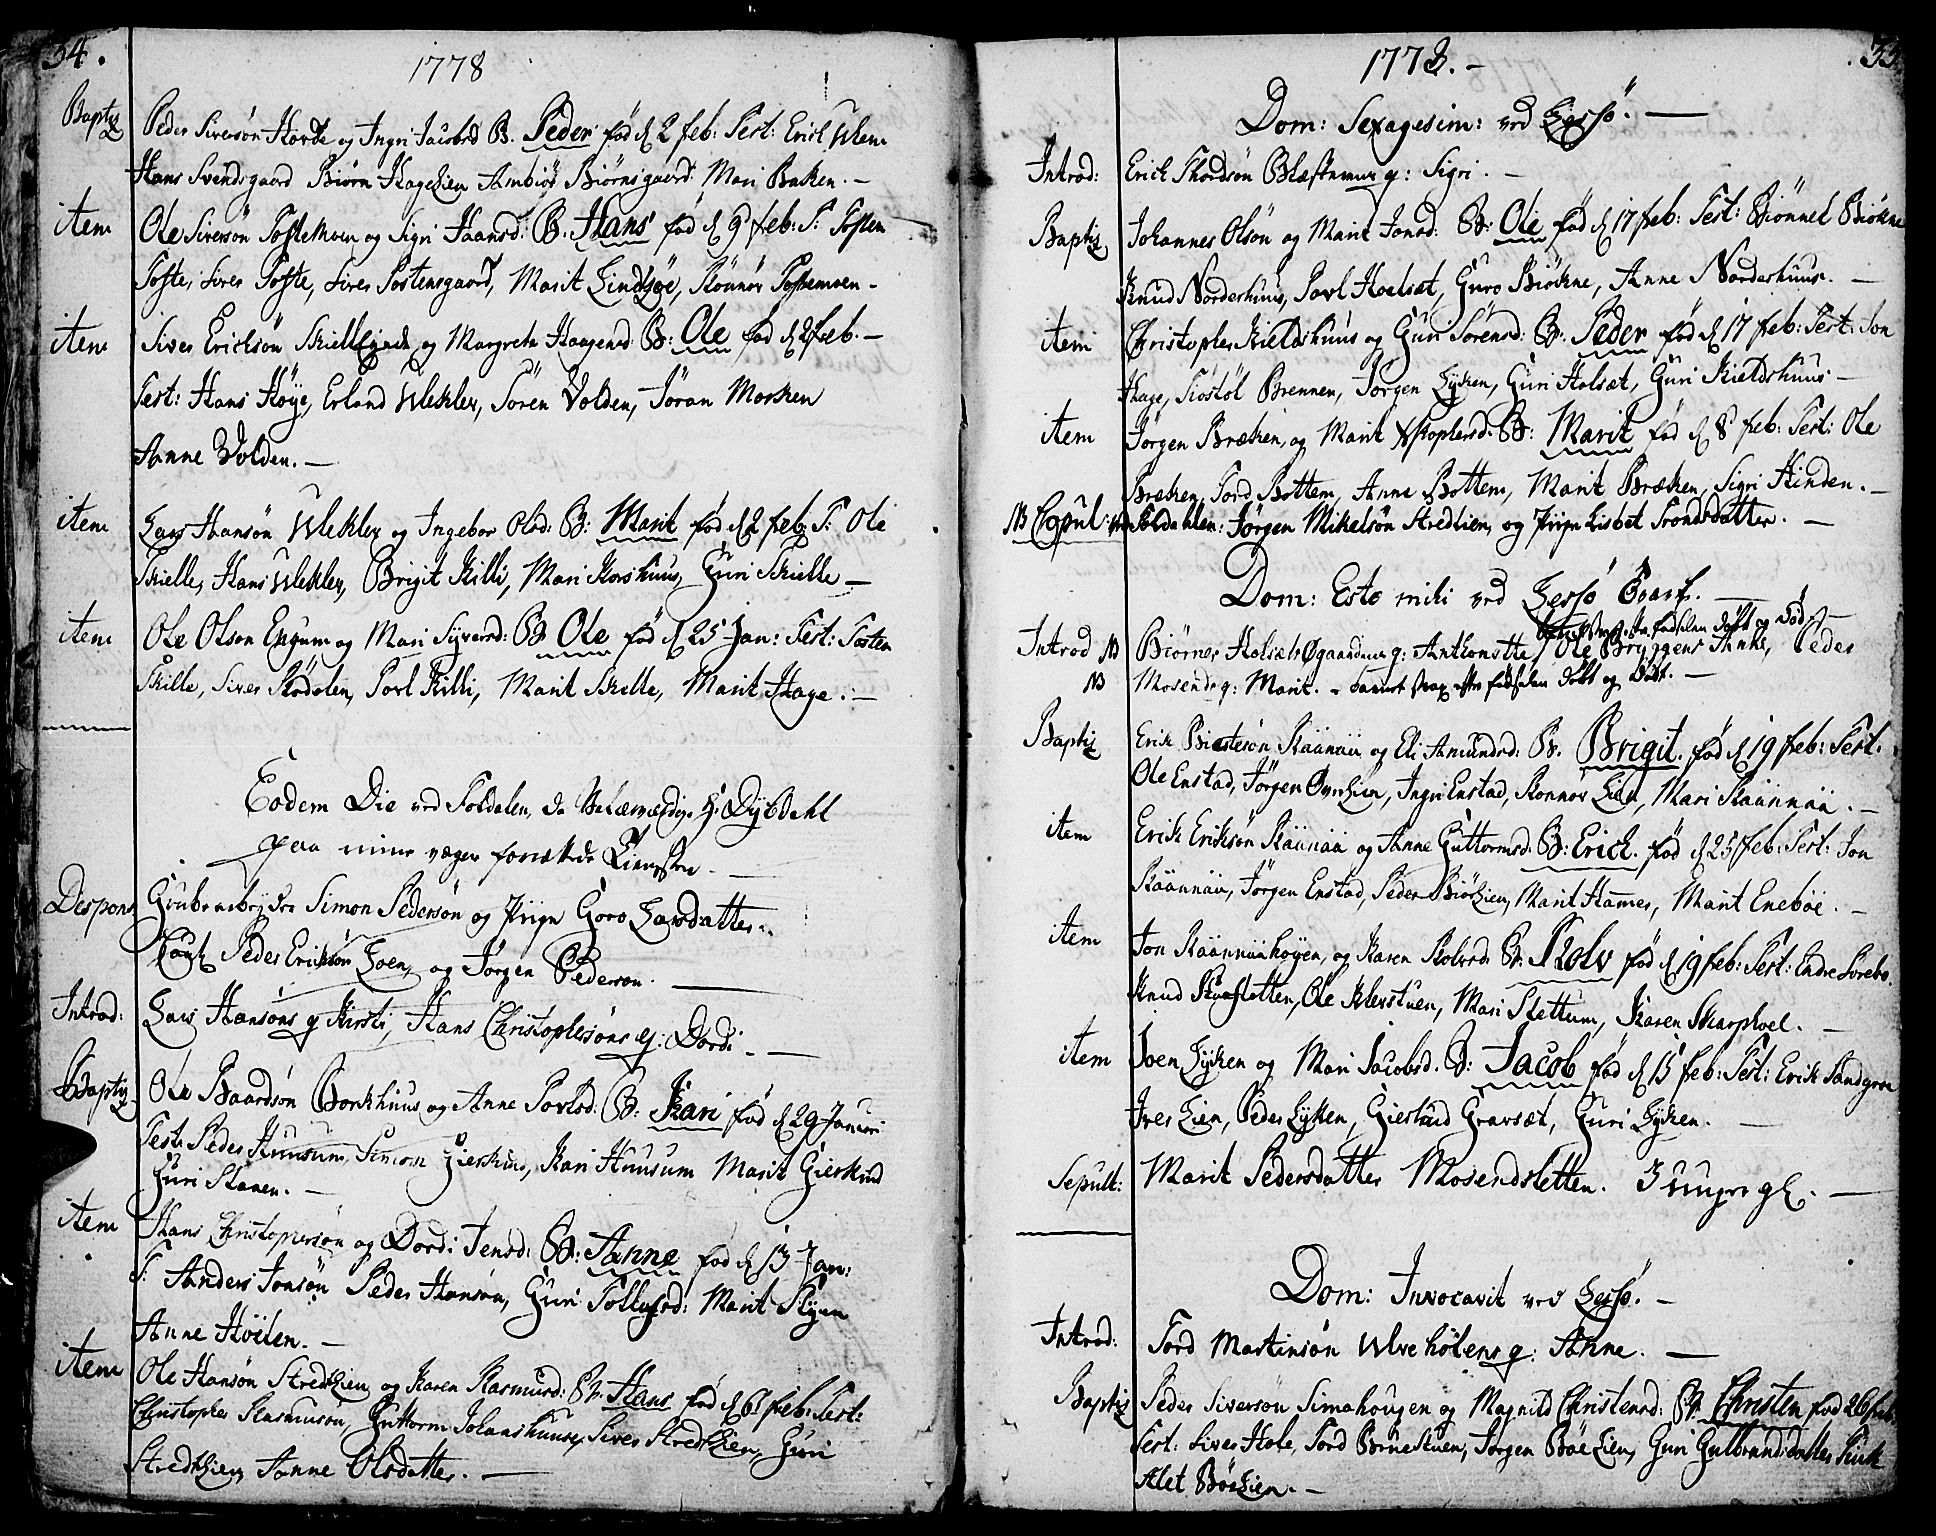 34.
1778
Baptiz Peder Siversön Horde og Ingri Jacobsd B. Peder fød d 2 feb: Test: Erich Ulem
Hans Svendsgaard Biørn Hagelien Ambiør Biörnsgaard. Mari Baken. —
item Ole Siversön Toftemoen og Sigri Hansd: B. Hans fød d 9 feb: T: Tosten
Tofte, Siver Tofte, Siver Tostensgaard, Marit Lindsöe, Rönnov Toftemoen —
item Siver Ericksön Skielle og Margreta Haagensd B: Ole fød d 2 feb. —
Test: Hans Höye, Erland Ulekler, Sören Volden, Jöran Morken
Anne Volden. —
item Lars Hansön Ulekler og Ingebor Olsd: B: Marit fød d 2 feb: T: Ole
Skielle, Hans Ulekler, Brigit Killi, Mari Korshuus, Guri Skielle —
item Ole Olson Engum og Mari Siversd: B. Ole fød d 25 Jan: Test: Tosten
Skille, Siver Rödölen, Povl Killi, Marit Skille, Marit Hage. —
Eodem Die ved Foldalen, da Velærværdige Hr Dybdahl
paa mine vegne forrættede Tienesten. —
Despons Grubearbeyder Simon Pedersön og Piige Goro Larsdatter.
Cauti Peder Erichsön Loen, og Jörgen Pederson. —
Introd: Lars Hansöns q Kirsti, Hans Christophersöns q: Dordi. —
Baptiz Ole Baardsön Borkhuus og Anne Povlsd: B: Kari fød d 29 Januri
Test: Peder Huusum, Simon Gierkind, Kari Huusum Marit Gierkind
Guri Stanen. —
item Hans Christopersön og Dordi Jensd: B: Anne fød d 13 Jan:
T: Anders Jonsön Peder Hansön, Guri Tollefsd: Marit Flyen
Anne Höilen. —
item Ole Hansön Stredtlien og Karen Rasmusd: B. Hans fød d 6 feb: Test:
Christopher Rasmusön, Guttorm Johanshuus, Siver Stredtlien, Guri
Stredtlien, Anne Olsdatter. —
1778. —
35
Dom: Sexagesim: ved Lessö. —
Introd: Erick Thordsön Blæstrmur q: Sigri. —
Baptiz Johannes Olsön og Marit Jonsd: B: Ole fød d 17 feb: Test: Biönnel Biökne
Knud Norderhuus, Povl Hoelsæt, Guro Biökne, Anne Norderhuus. —
item Christopher Kieldshuus og Guri Sörensd: B. Peder fød d 17 feb: Test: Jon
Hage, Siöstöl Brennen, Jörgen Lyken, Guri Holsæt, Guri Kieldshuus —
item Jörgen Bræken, og Marit Xstophersd. B: Marit fød d 8 feb: Test: Ole
Bræken, Tord Bottem, Anne Bottem, Marit Bræken, Sigri Hinden. —
NB Copul: ved Foldahlen: Jörgen Mikelsön Stredlien, og Piige Lisbet Trondsdatter. —
Dom: Esto mihi ved Lessö Værk. —
strax efter fødselen døbt og død
Introd NB Biörner Holsæt Øgaarden q: Anthonette / Ole Bryggens Anne, Peder
NB Mosends q: Marit. — barnet strax efter fødselen døbt og dödt. —
Baptiz Erik Bieteson Raannaa og Eli Amundsd: B. Brigit. fød d 19 feb: Test:
Ole Enstad, Jörgen Øverlien, Ingri Enstad, Ronnov Lien, Mari Raannaa. —
item Erik Eriksön Raanaa og Anne Guttormsd. B: Erich. fød d 25 feb: Test: Jon
Raannaa, Jörgen Enstad, Peder Biörlien, Marit Hamer, Marit Eneböe. —
item Jon Raannaahögen, og Karen Rolvsd. B: Rolv fød d 19 feb: Test: Endre Torebo.
Knud Skarfletten, Ole Klevstuen, Mari Slettum, Karen Skarphoel. —
item Joen Lyken og Mari Jacobsd. B: Jacob fød d 15 feb: Test: Erik Sandgroe
Iver Lien, Peder Lyken, Gierlaud Gravsæt, Guri Lyken. —
Sepult: Marit Pedersdatter Mosendsletten. 3 uuger gl. —
Dom: Invocavit ved Lessö. —
Introd: Tord Martinsön Ulvehölens q: Anne. —
Baptiz Peder Siversön Simahougen og Magnild Christensd: B. Christen fød 26 feb.
Test: Siver Hole, Tord Bonestuen, Jörgen Böelien, Guri Gulbrandsdatter Kirk
Alet Böelien. —